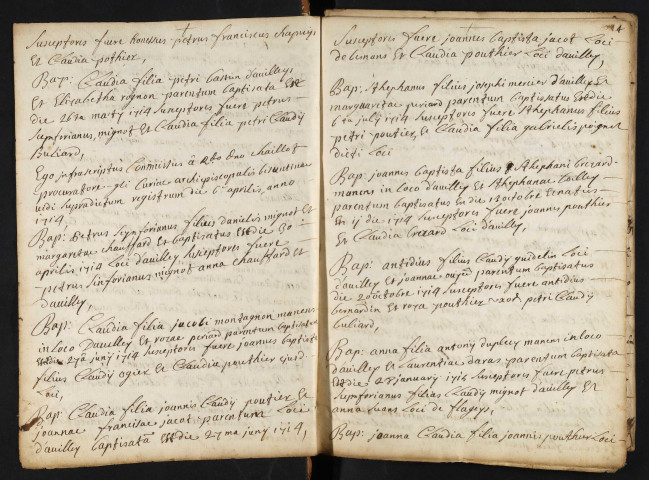 Susceptores fuere honestus petrus franciscus chapuys
Et Claudia pothier,
Bap: Claudia filia petri d'auilley
Et Elizabetha rognon parentum baptisata Est
die 26a martÿ 1714 susceptores fuere petrus
simforianus, mignot et Claudia filia petri Claudÿ
buliard,
Ego infrascriptus Commissus a Rdo dno chaillot
procuratore gli Curiae archiepiscopalis bisuntinae
vidi supradictum registrum die 6a aprilis, anno
1714
Bap: Petrus simforianus filius danielis mignot Et
margaritae chauffard Et baptisatus Est die 30
aprilis 1714 Loci d'auilley susceptores fuere
petrus sinforianus mignot anna chauffard Et
d'auilley,
Bap: Claudia filia jacobi montagnon manens
in loco D'auilley Et rozae periard parentum baptisata
Est die 27a junÿ 1714 susceptores fuere joannes baptista
filius Claudÿ ogier Et Claudia pouthier ejusd
Loci,
Bap: Claudia filia joannis Claudÿ poutier Et
joannae franciscae jacot parentum Loci
d'auilley baptisata Est die 27ma junÿ 1714,
4
Susceptores fuere joannes baptista jacot Loci
de Et Claudia pouthier Loci d'auilley,
Bap: Sthephanus filius josephi mercier d'auilley Et
margaretae periard parentum baptisatus Est die
6ta julÿ 1714 susceptores fuere Sthephanus filius
petri poutier, Et Claudia filia gabrielis peignet
dicti Loci
Bap: joannes baptista filius Sthephani
manens in loco d'auilley Et Sthephanae
parentum baptisatus Est die 13 octobre Et natus
Est ij die 1714 susceptores fuere joannes pouthier
Et Claudia Loci d'auilley,
Bap: antidius filius Claudÿ guidelin Loci
d'auilley Et joannae parentum baptisatus
die 20 octobre 1714 susceptores fuere antidius
bernardin Et roza pouthier uxor petri Claudÿ
buliard,
Bap: anna filia antonÿ duplecy manens in loco
d'auilley Et Laurentiae daras parentum baptisata
Est die 28 januarÿ 1715 susceptores fuere petrus
simforianus filius Claudÿ mignot d'auilley Et
anna Loci de flagey,
Bap: joanna Claudia filia joannis pouthier Loci